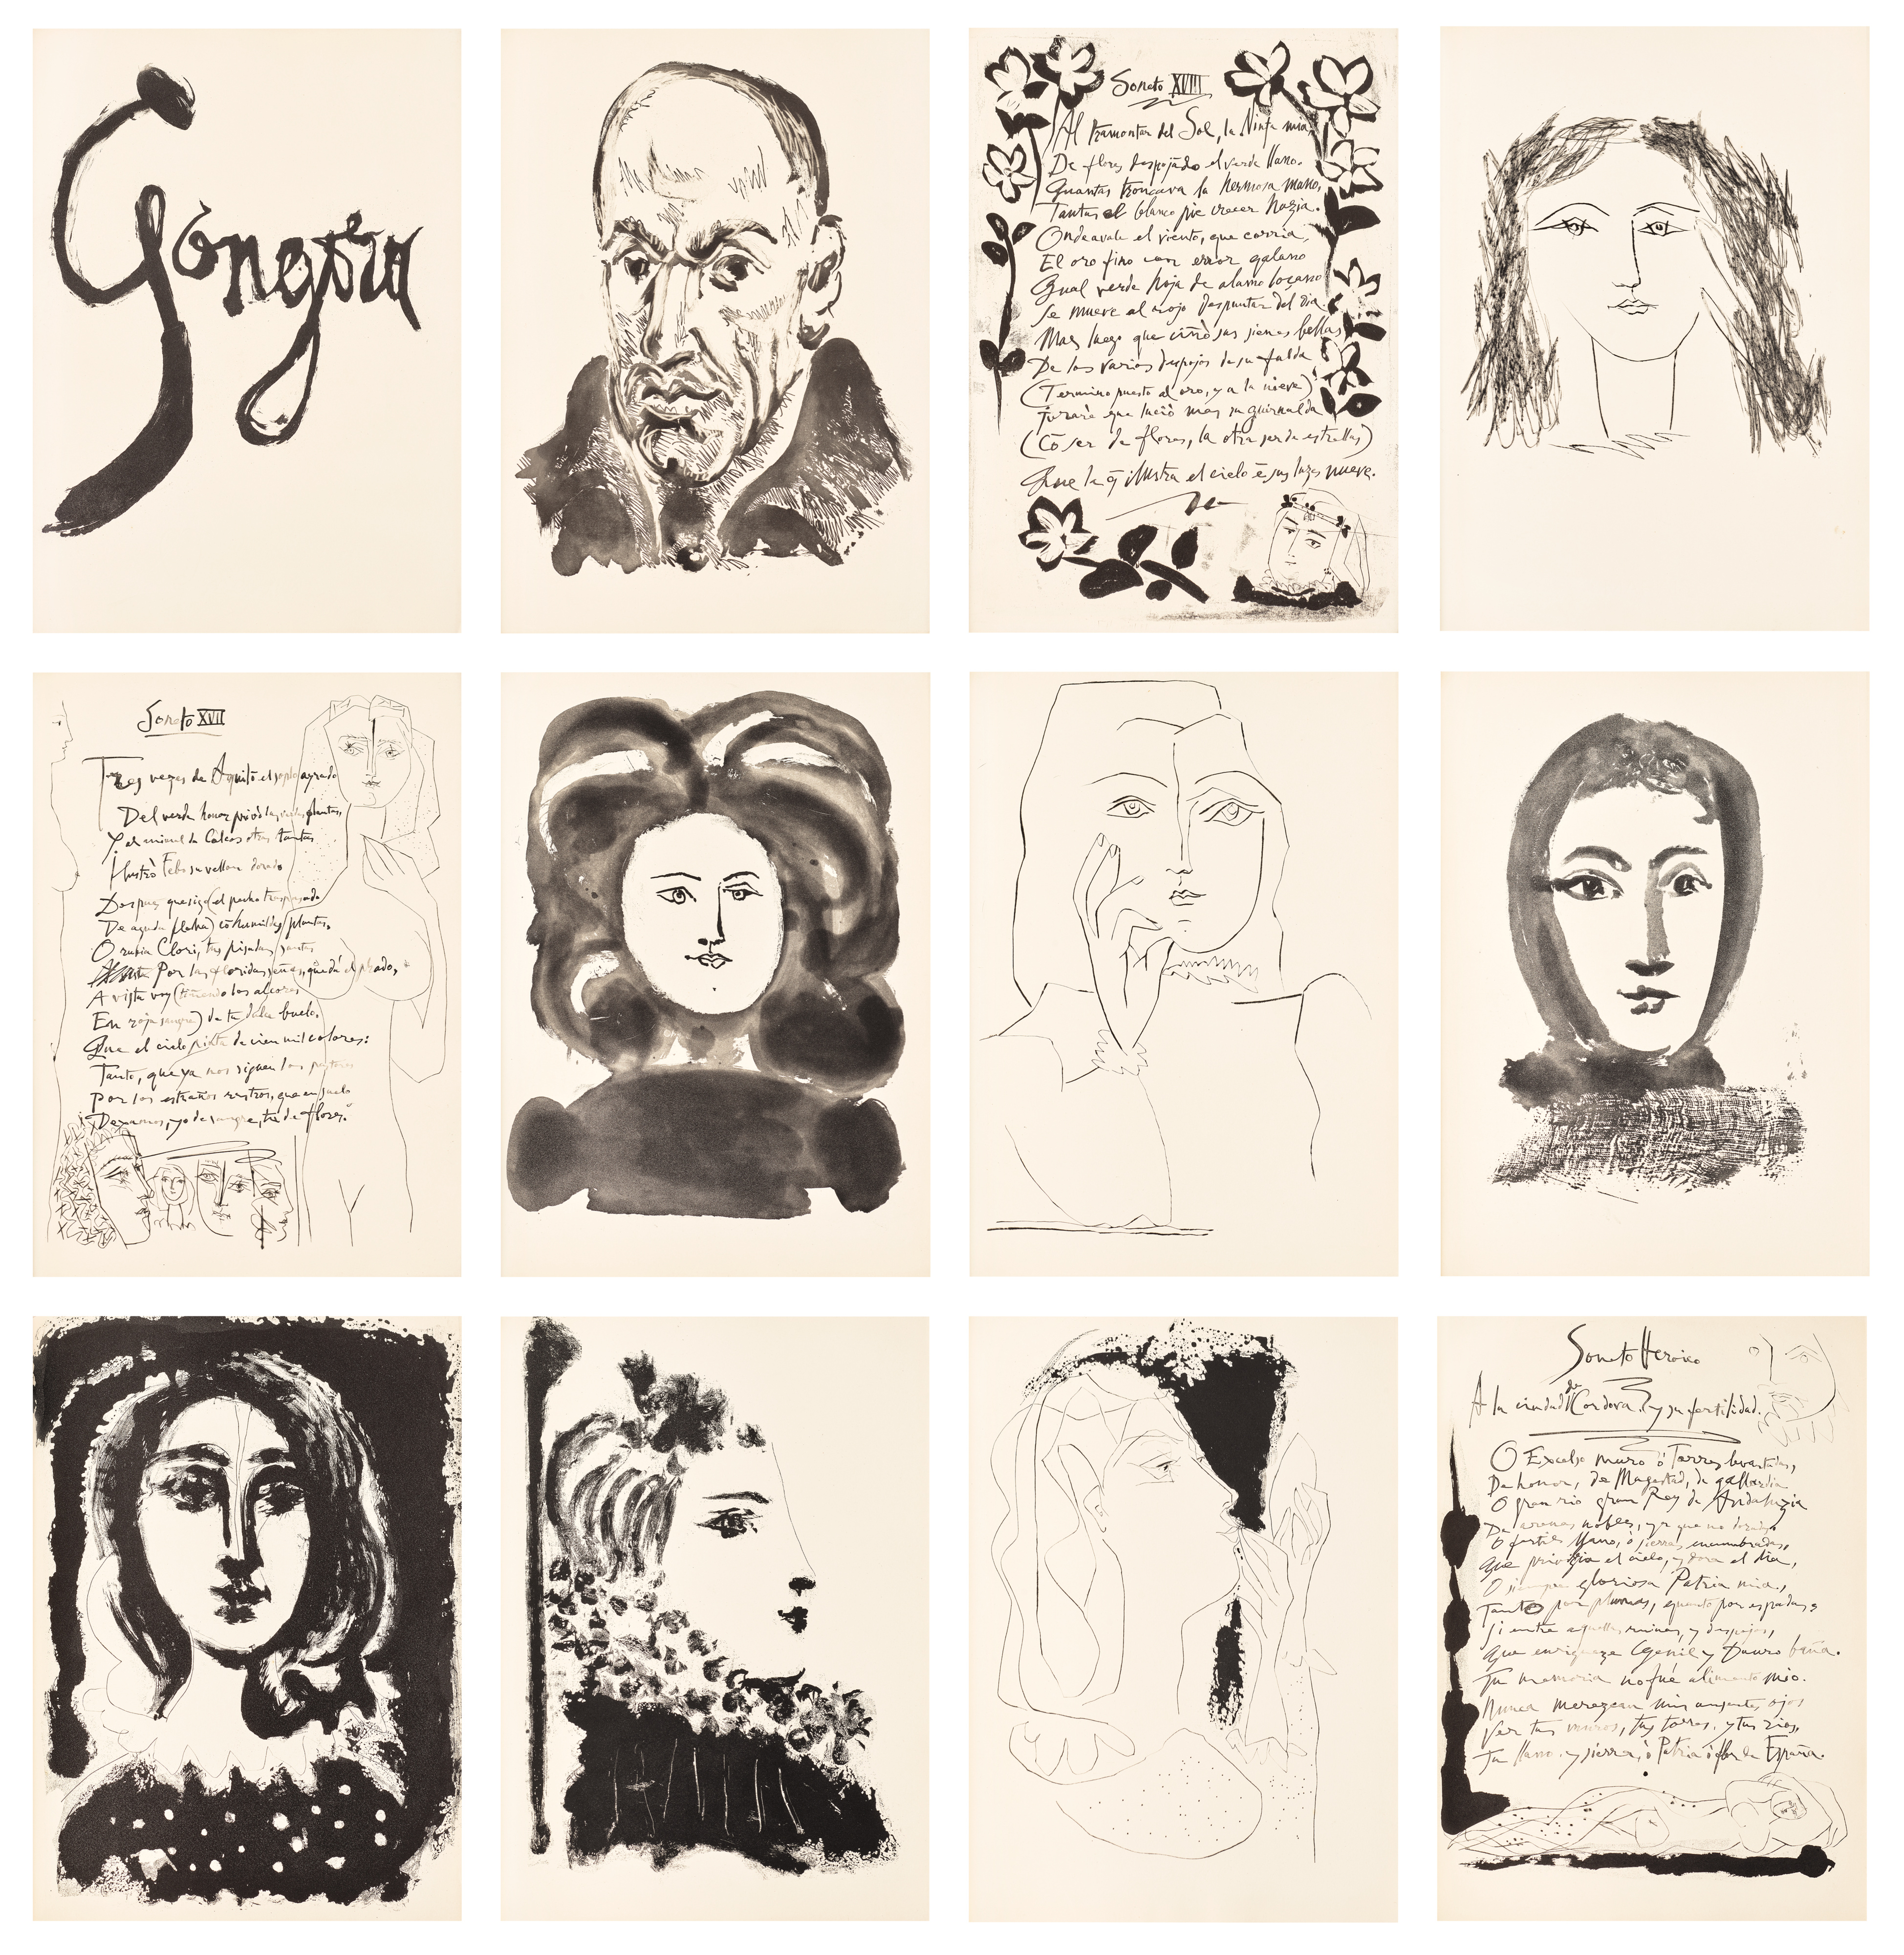 Góngora
Soneto XVIII
Al tramontar del Sol, la Ninfa mia,
De flores despojãdo el verde llano.
Quantas troncava la hermosa mano,
Tantas el blanco pie crecer hazia.
Ondeavale el viento, que corria,
El oro fino con error galano
Qual verde hoja de alamo loçano
Se mueve al rojo despuntar del dia.
Mas luego que ciñò sus sienes bellas
De los varios despojos de su falda
(Termino puesto al oro, y a la nieve)
Jurarè que luciò mas su guirnalda
(Cõ ser de flores, la otra ser de estrellas)
Que la q̃ ilustra el cielo ẽ sus luzes nueve.
Soneto XVII
Tres vezes de Aquilõ el soplo ayrado
Del verde honor privò las verdes plantas,
Y al animal de Colcos otras tantas
Ilustrò Febo su vellon dorado
Despues que sigo (el pecho traspassado
De aguda flecha) cõ humildes plantas,
O rubia Clori, tus pisadas santas
Por las floridas señas, que dà el prado,
A vista voy (tiñendo los alcores
En roja sangre) de tu dulce buelo.
Que el cielo pinta de cien mil colores:
Tanto, que ya nos siguen los pastores
Por los estraños rastros, que en suelo
Dexamos, yo de sangre, tu de flores.
Soneto Heroico
A la ciudad de Cordova. y su fertilidad.
O Excelso muro ò Torres levantadas,
De honor, de Magestad, de gallardia
O gran rio gran Rey de Andaluzia
De arenas nobles, ya que no doradas
O fertil llano, ò sierras encumbradas,
Que privilegia el cielo, y dora el dia,
O siempre gloriosa Patria mia,
Tanto por plumas, quanto por espadas
Si entre aquellas ruinas, y despojos,
Que enriqueze Genil y Dauro baña.
Tu memoria no fué alimento mio.
Nunca merezcan mis ausentes ojos
Ver tus muros, tus torres, y tus rios,
Tu llano. y sierra, ò Patria ò flor de España.